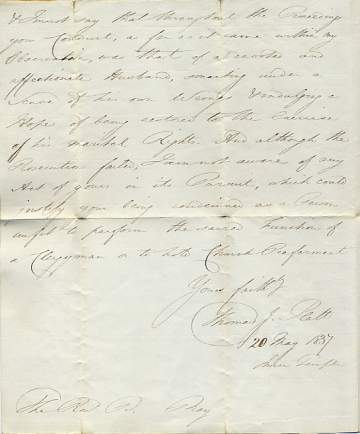 & I must say that throughout the Proceedings
your Conduct, as far as it came within my
Observation, was that of a devoted and
affectionate Husband, smarting under a
Sense of his own Wrongs & indulging a
Hope of being restored to the Exercise
of his marital Rights. And although the
Prosecution failed, I am not aware of any
Act of yours in its Pursuit, which could
justify your being considered as a Person
unfit to perform the sacred Function of
a Clergyman or to hold Church Preferment
Yours faithfy
Thomas J. Platt
20 May 1837
Inner Temple
The Rev